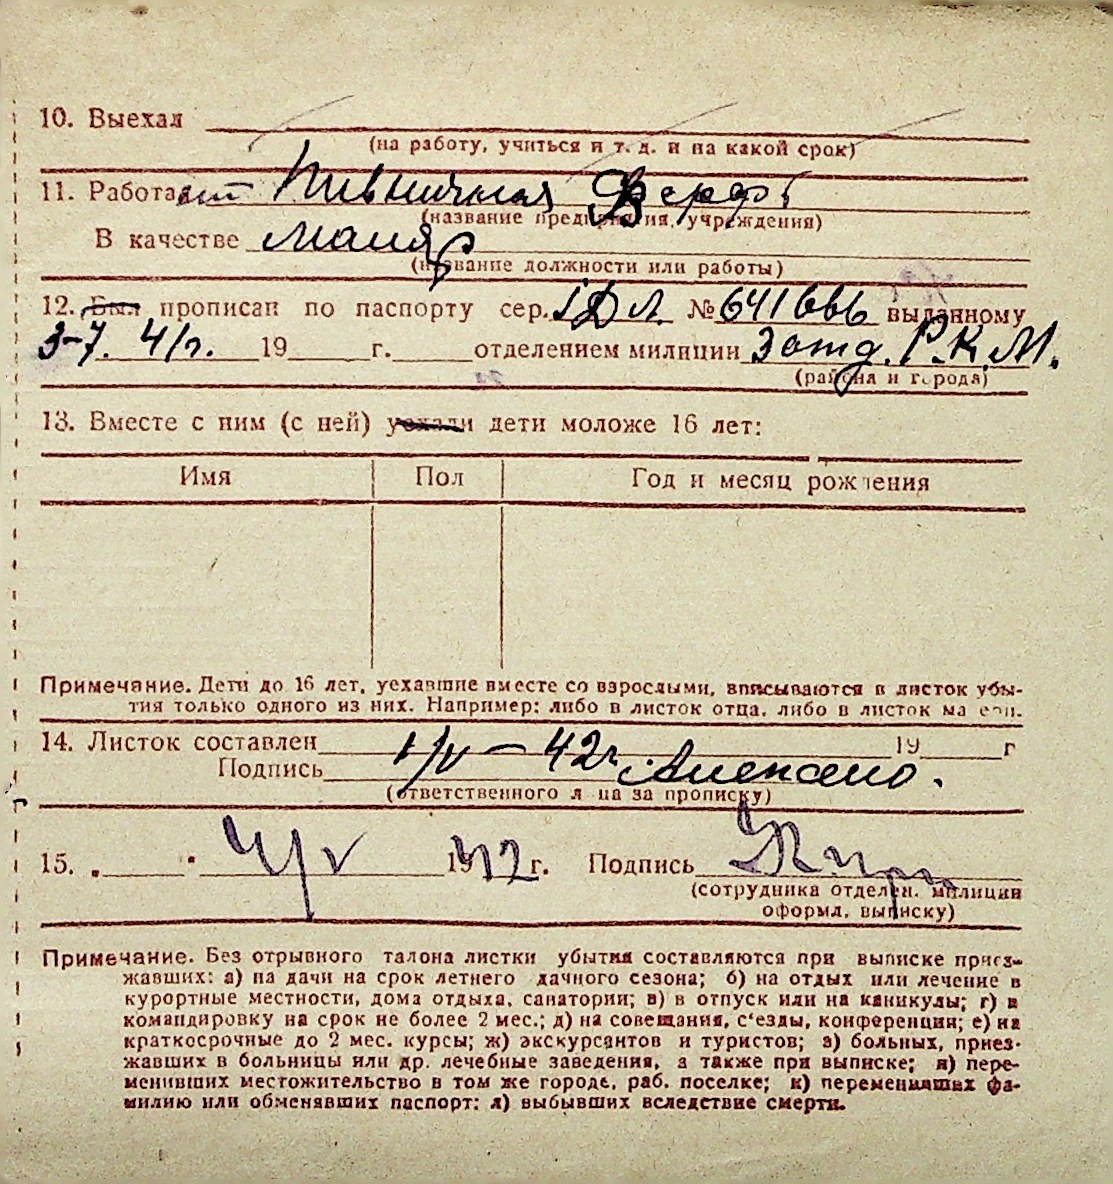 10. Выехал
(на работу, учиться и т. д. и на какой срок)
11. Работает Верфь
(название предприятия, учреждения)
В качестве маляр
(название должности или работы)
12. Был прописан по паспорту сер. IДЛ № 641666 выданному
3-7. 41г. 19 г. отделением милиции 3 отд. Р.К.М.
(района и города)
13. Вместе с ним (с ней) уехали дети моложе 16 лет:
Имя Пол Год и месяц рождения
Примечание. Дети до 16 лет, уехавшие вместе со взрослыми, вписываются в листок убы-
тия только одного из них. Например: либо в листок отца, либо в листок матери.
14. Листок составлен 1/V - 42г. 19 г
Подпись
(ответственного лица за прописку)
15. „ " 4/V 1942 г. Подпись
(сотрудника отделен. милиции
оформл. выписку)
Примечание. Без отрывного талона листки убытия составляются при выписке приез-
жавших: а) на дачи на срок летнего дачного сезона; б) на отдых или лечение в
курортные местности, дома отдыха, санатории; в) в отпуск или на каникулы; г) в
командировку на срок не более 2 мес.; д) на совещания, с'езды, конференции; е) на
краткосрочные до 2 мес. курсы; ж) экскурсантов и туристов; з) больных, приез-
жавших в больницы или др. лечебные заведения, а также при выписке; и) пере-
менивших местожительство в том же городе, раб. поселке; к) переменивших фа-
милию или обменявших паспорт; л) выбывших вследствие смерти.